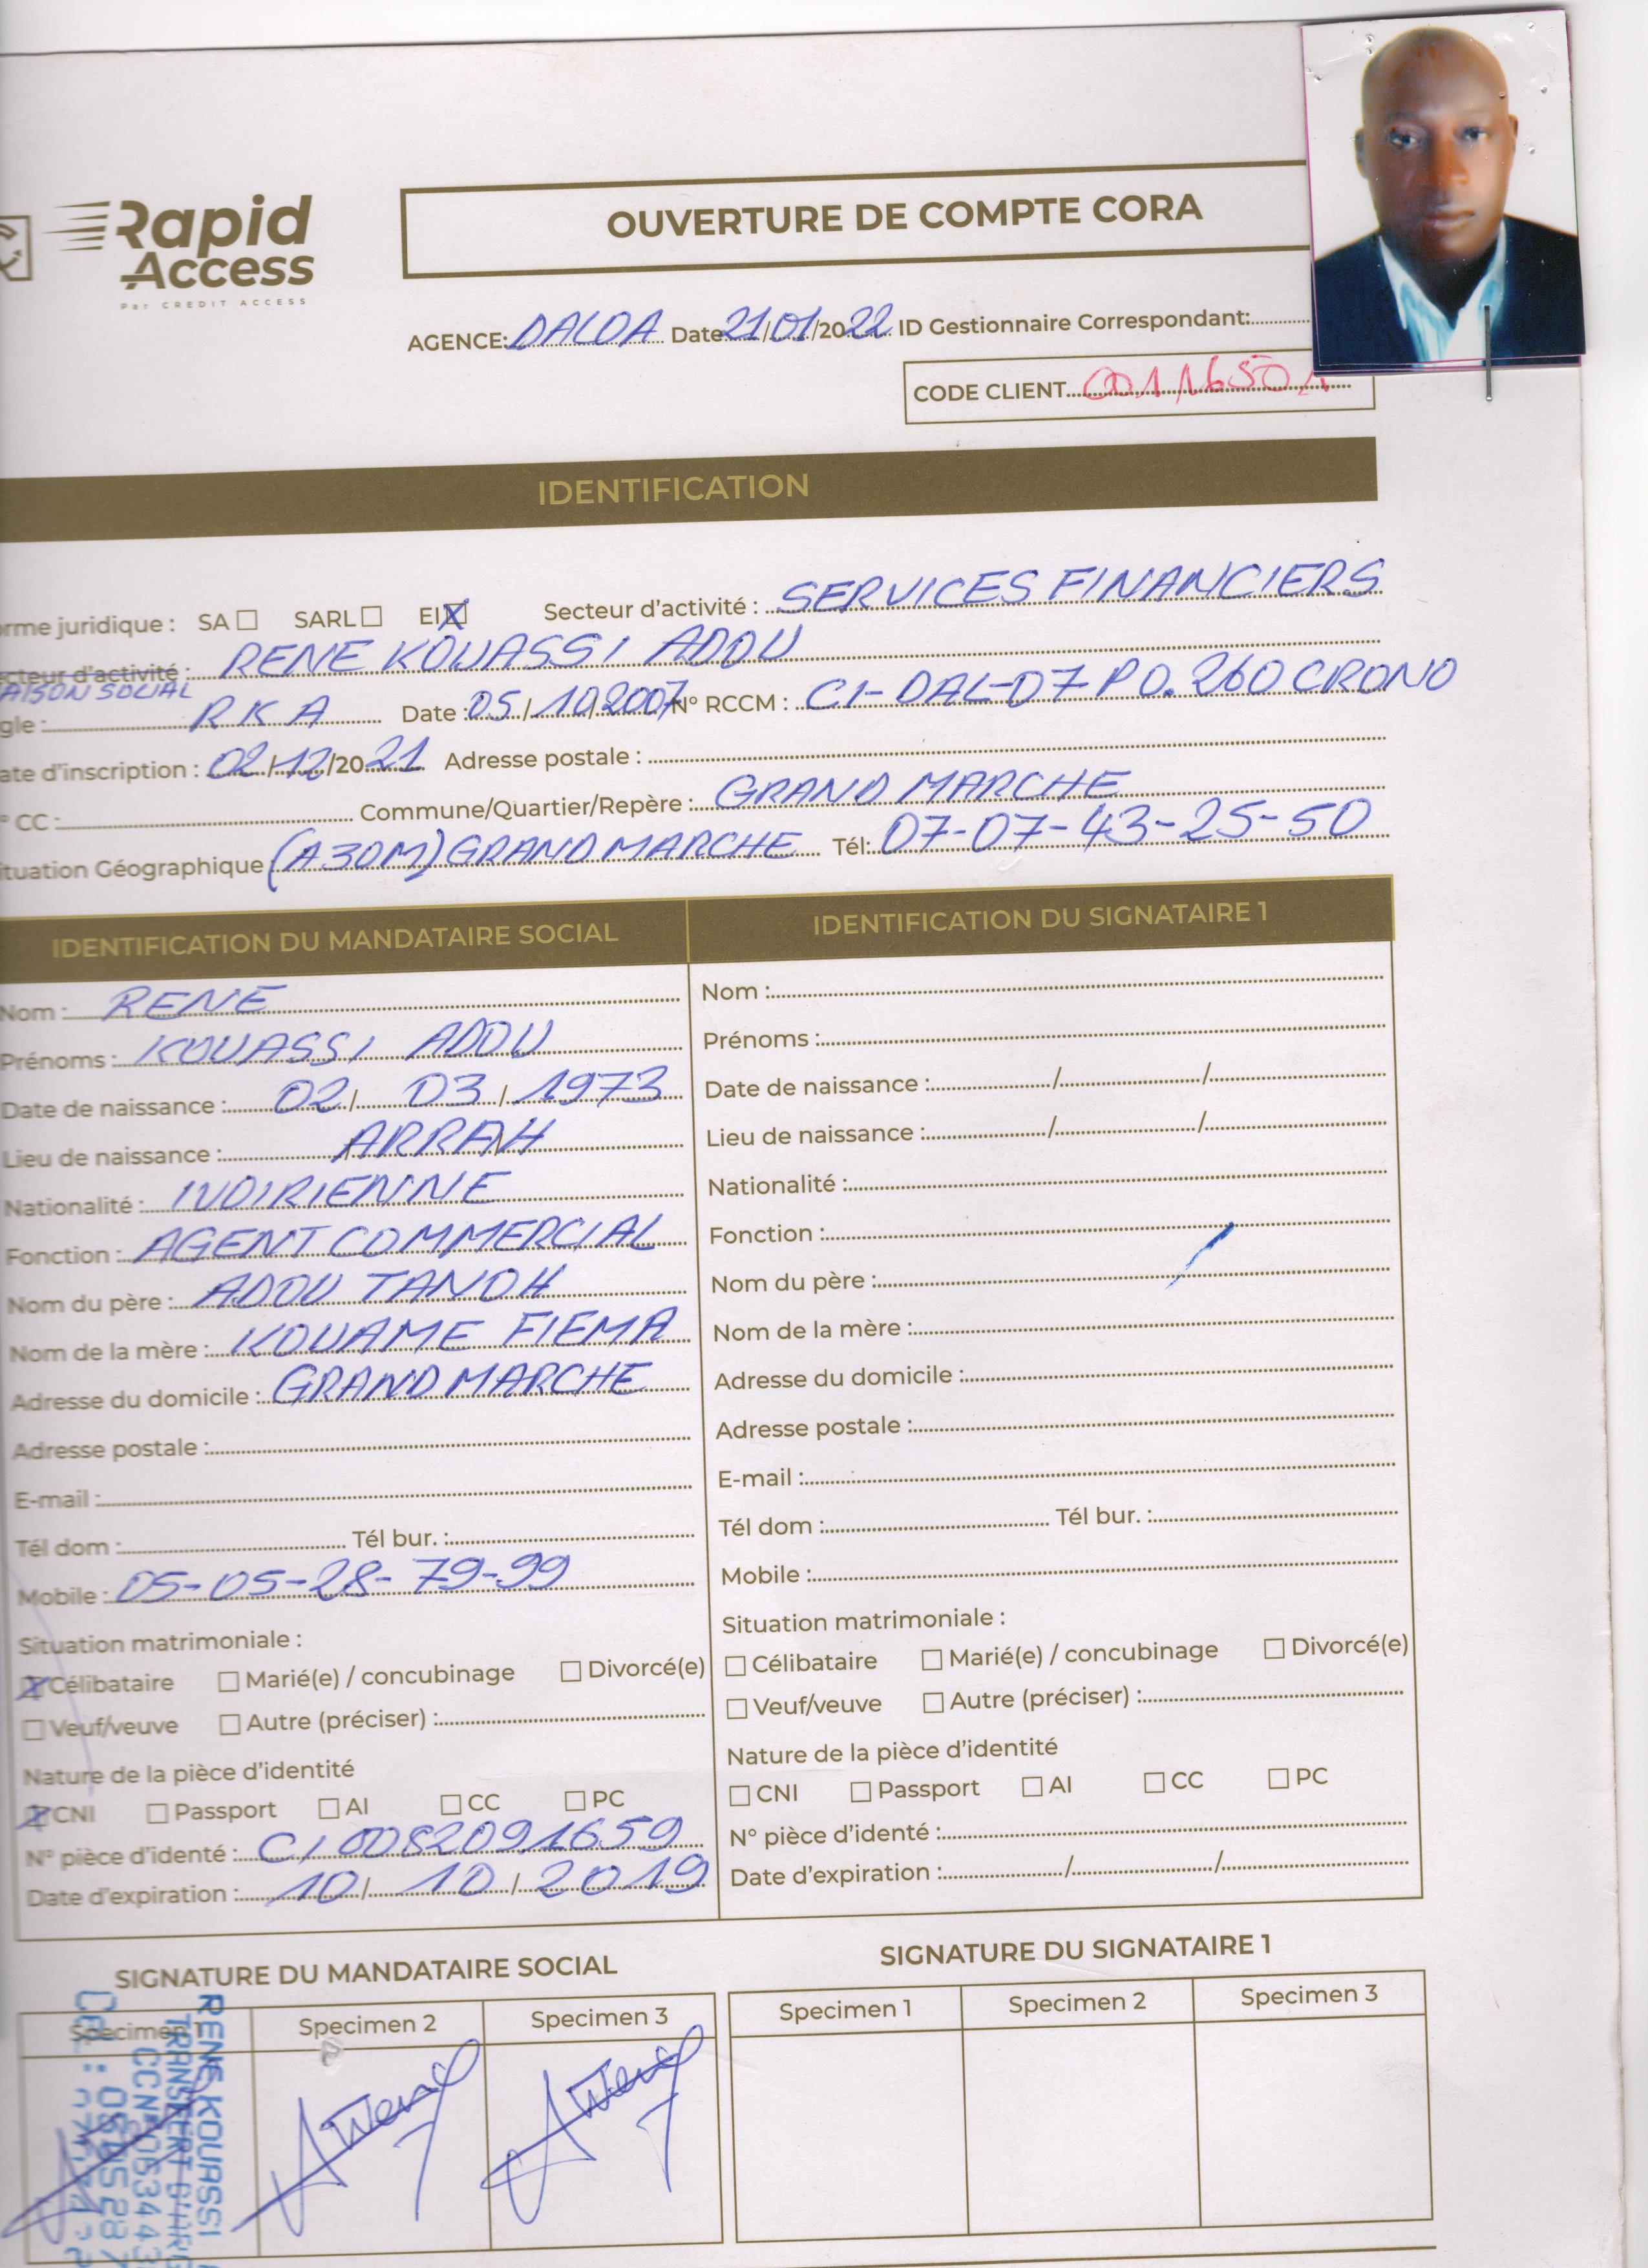 Rapid
Access
Par CREDIT ACCESS
OUVERTURE DE COMPTE CORA
AGENCE: DALOA Date 21/01/2022 ID Gestionnaire Correspondant:
CODE CLIENT 00116501
IDENTIFICATION
orme juridique : SA SARL EI X Secteur d'activité : SERVICES FINANCIERS
cteur d'activité : RENE KOUASSI ADOU
AISON SOCIAL
gle : RKA Date : 05/10/2007 N° RCCM : CI-DAL-07 P O. 260 CRONO
ate d'inscription : 02/12/2021 Adresse postale :
° CC : Commune/Quartier/Repère : GRAND MARCHE
ituation Géographique (A 30M) GRAND MARCHE Tél: 07-07-43-25-50
IDENTIFICATION DU MANDATAIRE SOCIAL
Nom : RENE
Prénoms : KOUASSI ADOU
Date de naissance : 02/03/1973
Lieu de naissance : ARRAH
Nationalité : IVOIRIENNE
Fonction : AGENT COMMERCIAL
Nom du père : ADOU TANOH
Nom de la mère : KOUAME FIEMA
Adresse du domicile : GRAND MARCHE
Adresse postale :
E-mail :
Tél dom : Tél bur. :
Mobile : 05-05-28-79-99
Situation matrimoniale :
X Célibataire Marié(e) / concubinage Divorcé(e)
Veuf/veuve Autre (préciser) :
Nature de la pièce d'identité
X CNI Passport AI CC PC
N° pièce d'identé : CI 0082091659
Date d'expiration : 10/10/2019
IDENTIFICATION DU SIGNATAIRE 1
Nom :
Prénoms :
Date de naissance : / /
Lieu de naissance : / /
Nationalité :
Fonction :
Nom du père :
Nom de la mère :
Adresse du domicile :
Adresse postale :
E-mail :
Tél dom : Tél bur. :
Mobile :
Situation matrimoniale :
Célibataire Marié(e) / concubinage Divorcé(e)
Veuf/veuve Autre (préciser) :
Nature de la pièce d'identité
CNI Passport AI CC PC
N° pièce d'identé :
Date d'expiration : / /
SIGNATURE DU MANDATAIRE SOCIAL
Specimen 1 Specimen 2 Specimen 3
RENE KOUASSI
SIGNATURE DU SIGNATAIRE 1
Specimen 1 Specimen 2 Specimen 3